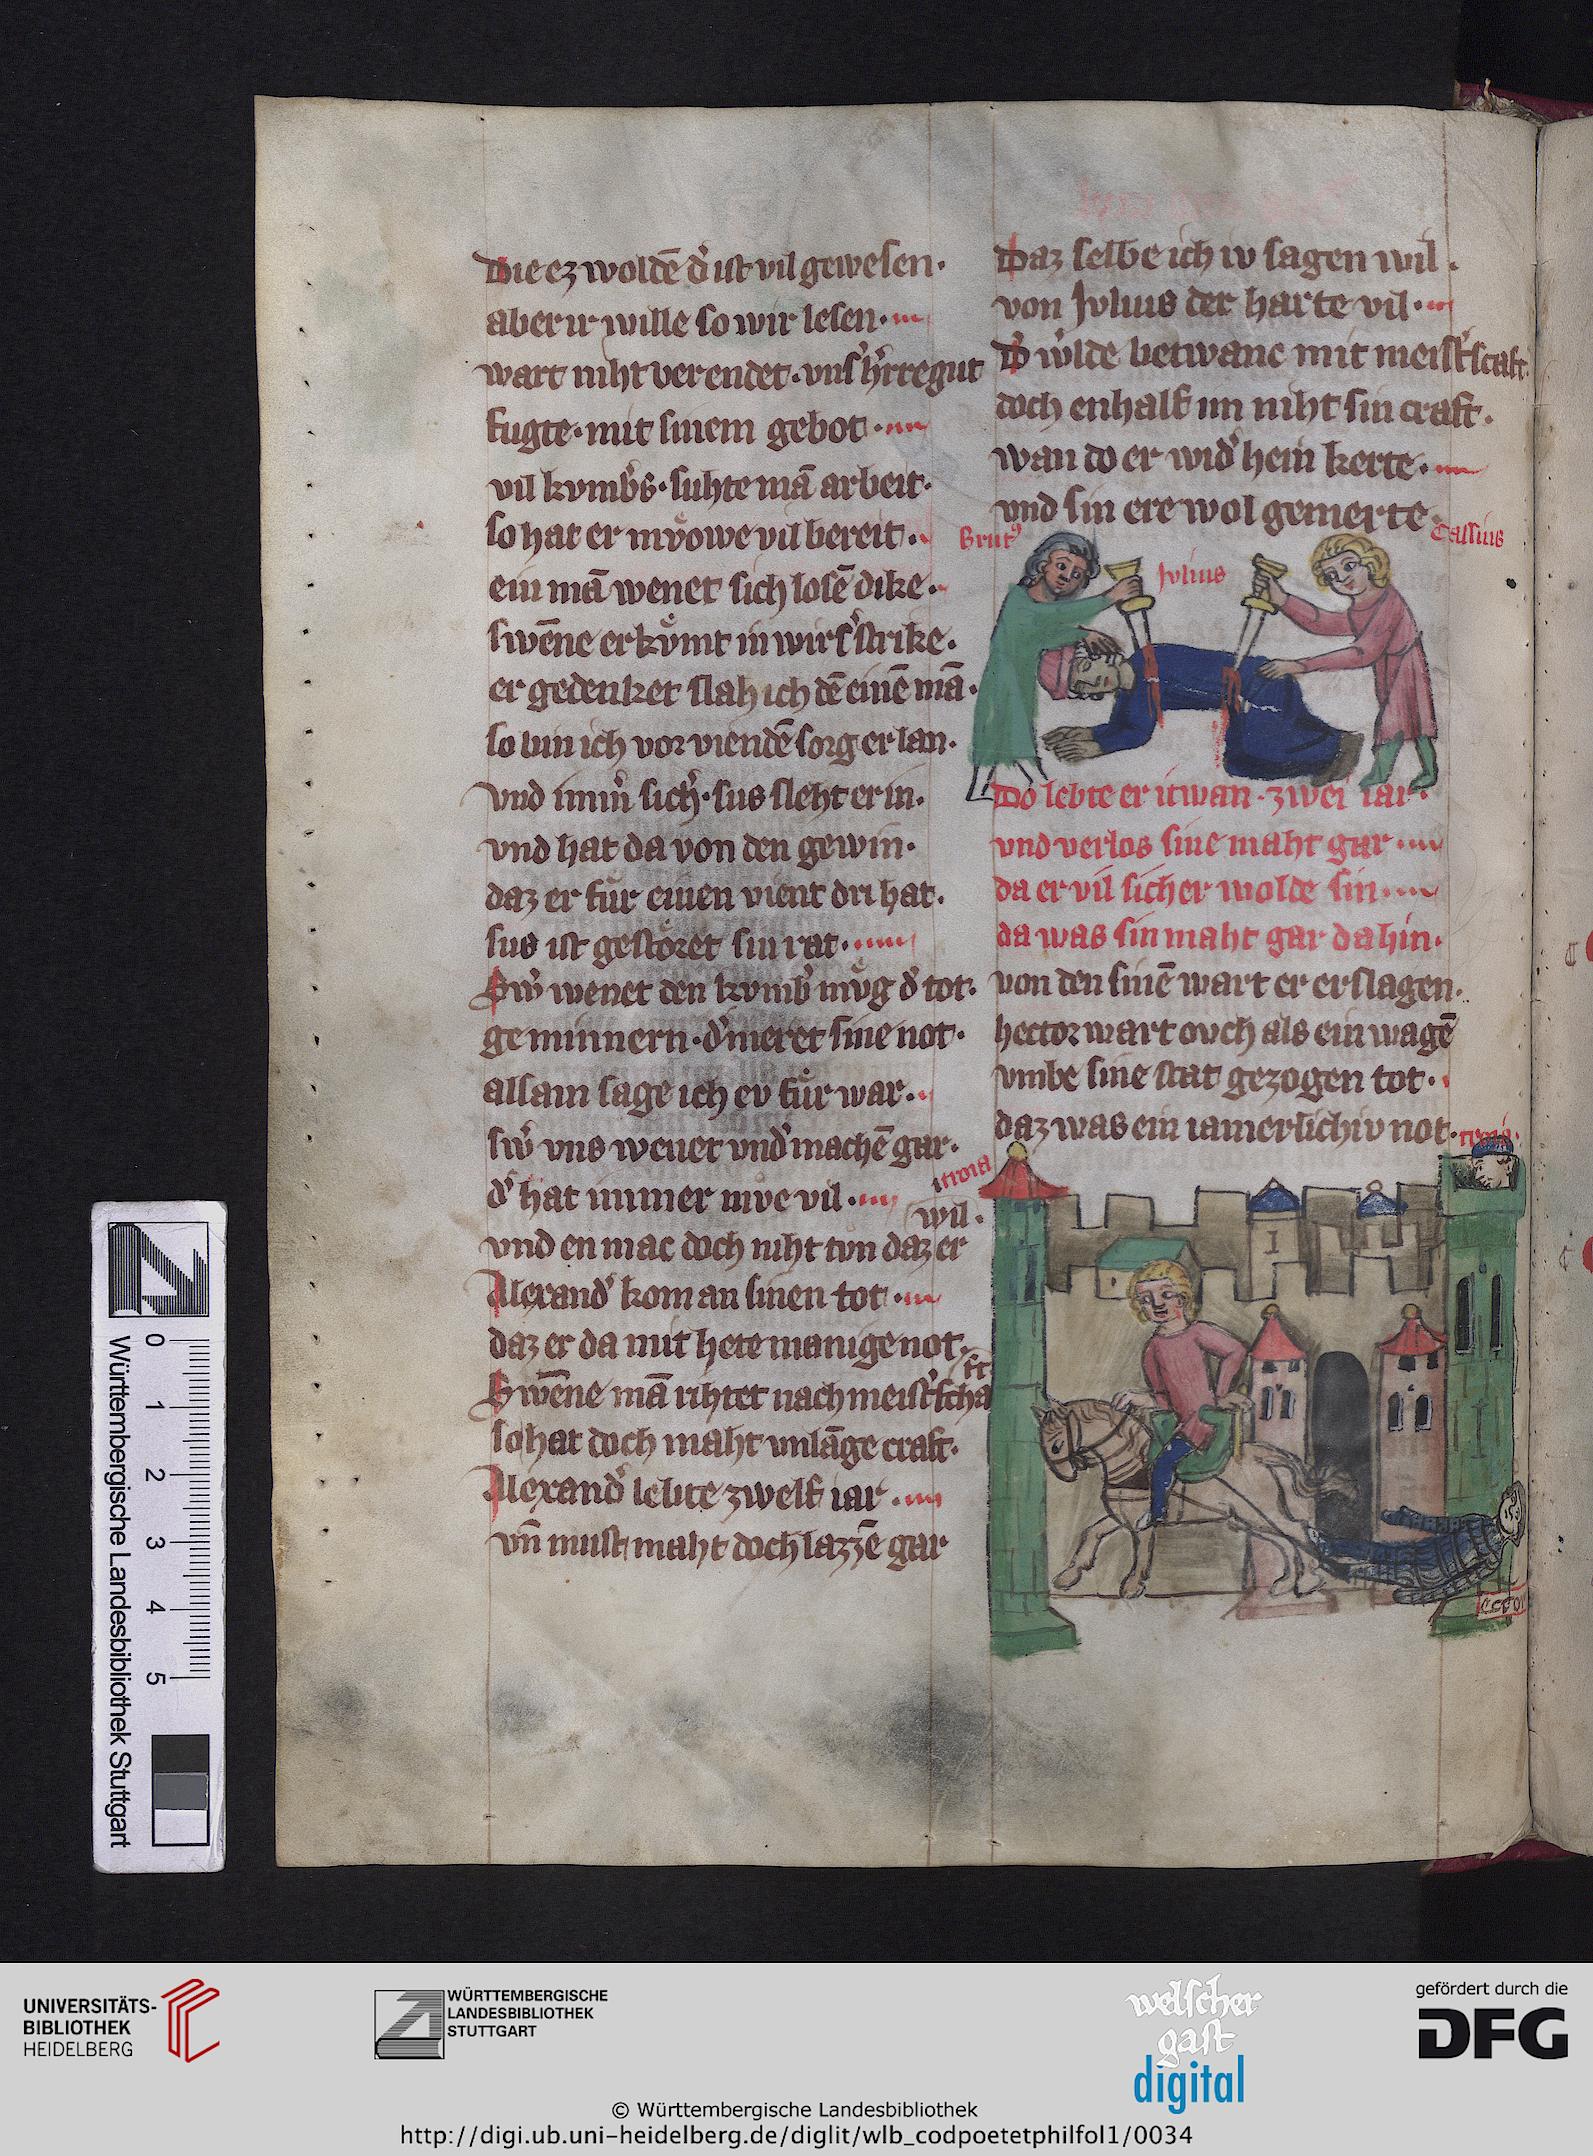 Die ez woldē d̾ ist vil gewesen·
aber ir wille so wir lesen·
wart niht verendet·vns̾ h̾rre gut
fugte·mit sinem gebot·
vil kvmb̾s·suhte mā arbeit·
so hat er mvͦowe vil bereit·
ein mā wenet sich losē dike·
swēne er kvͦmt in wirs̾ strike·
er gedenket slah ich dē einē mā·
so bin ich vor viendē sorg erlan·
vnd imm̾ sich̾·sus sleht er in·
vnd hat da von den gewin·
daz er fuͤr einen vient dri hat·
sus ist gestoͤret sin rat·
Sw̾ wenet den kvmb̾ mvͤg d̾ tot·
geminnern·d̾ meret sine not·
alsam sage ich ev fuͤr war·
sw̾ vns wenet vnd̾ machē gar·
d̾ hat immer mve vil·
wil·
vnd en mac doch niht tvn daz er
Alexand̾ kom an sinen tot·
daz er da mit hete manige not·
ft
Swēne mā rihtet nach meist̾scha
so hat doch maht vnlāge craft·
Alexand̾ lebte zwelf iar·
vn̄ must maht doch lazzē gar
Daz selbe ich iv sagen wil·
von Jvlius der harte vil·
D̾ w̾lde betwanc mit meist̾scaft·
doch enhalf im niht sin craft·
wan do er wid̾ hein kerte·
vnd sin ere wol gemerte·
Brut᾽
Jvlius
Cassius
Do lebte er itwan·zwei iar·
vnd verlos sine maht gar·
da er vil sicher wolde sin·
da was sin maht gar da hin·
von den sinē wart er erslagen·
hector wart ovch als ein wagē
vmbe sine stat gezogen tot·
daz was ein iamerlichiv not·
troia·
troia
Württembergische Landesbibliothek Stuttgart
0
1
2
3
4
5
UNIVERSITÄTS-
BIBLIOTHEK
HEIDELBERG
WÜRTTEMBERGISCHE
LANDESBIBLIOTHEK
STUTTGART
welscher
gast
digital
gefördert durch die
DFG
© Württembergische Landesbibliothek
http://digi.ub.uni-heidelberg.de/diglit/wlb_codpoetetphilfol1/0034